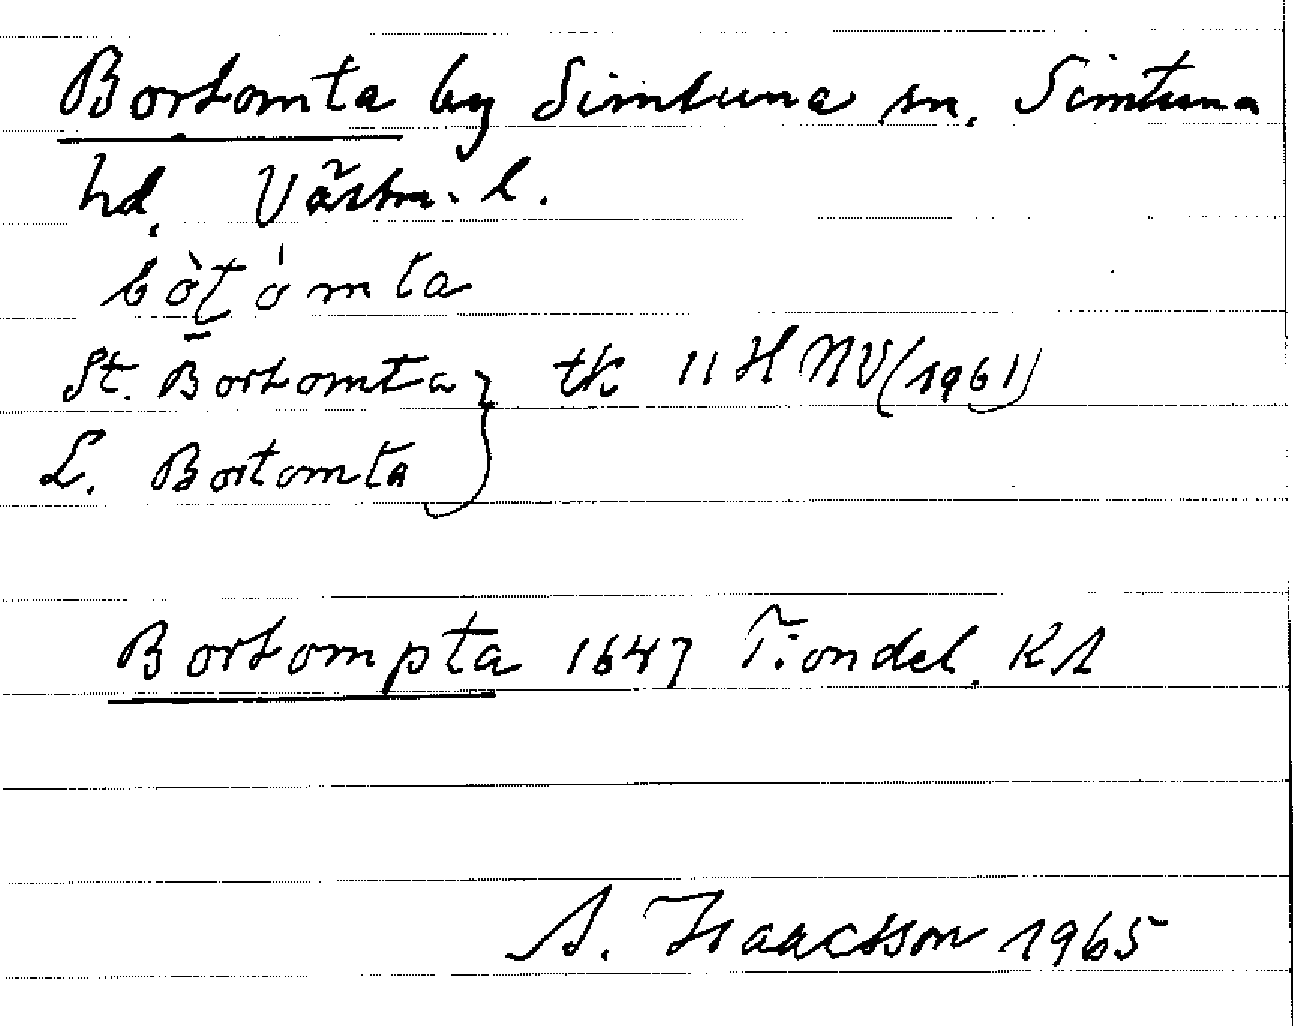 Bortomta by Simtuna sn. Simtuna
hd. Västm. l.
bòṯómta
St. Bortomta } tk 11 H NV (1961)
L. Bortomta
Bortompta 1647 Tiondel. KA
A. Isaacsson 1965